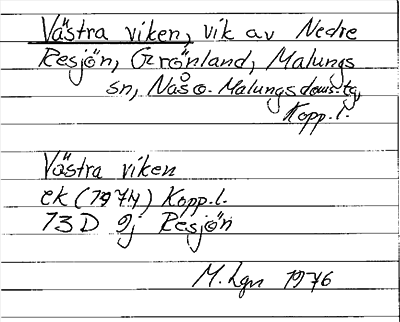 Västra viken, vik av Nedre
Resjön, Grönland, Malungs
sn, Nås o. Malungs doms. tg,
Kopp. l.
Västra viken
ek (1974) Kopp. l.
13D 9j Resjön
M. Lgn 1976